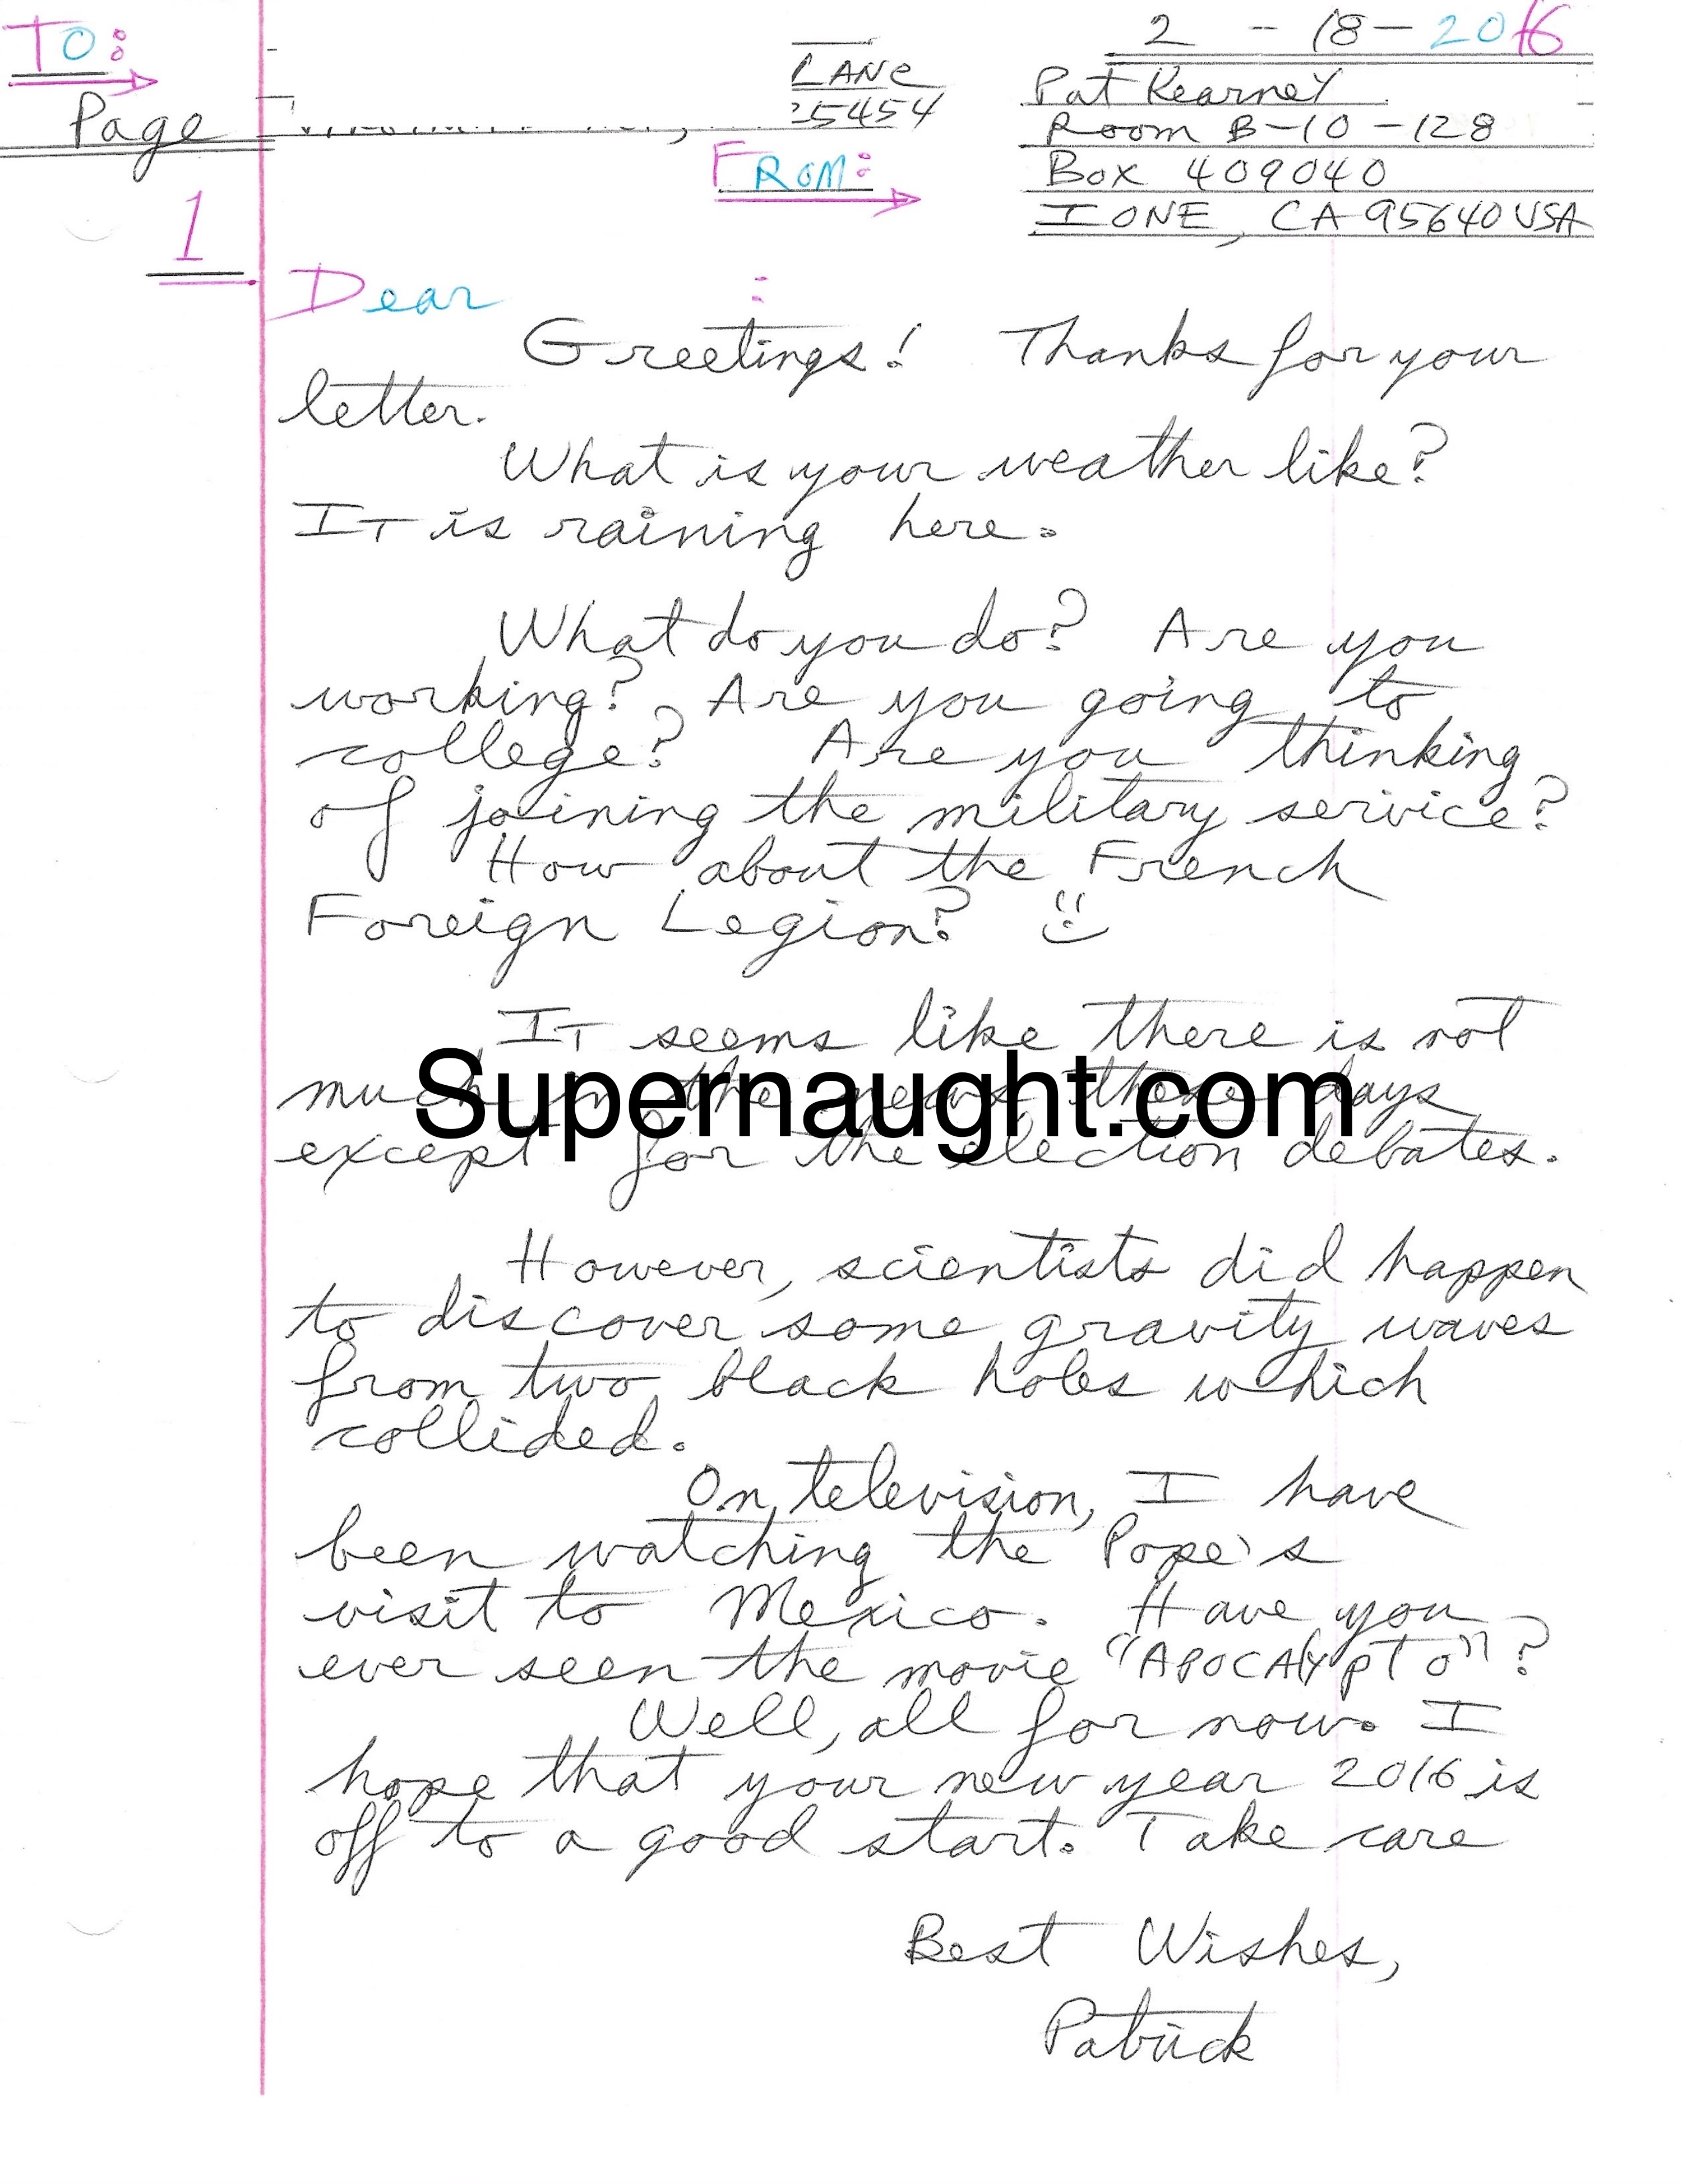 TO:
2 - 18 - 2016
LANE
Pat Kearney
25454
Page
Room B-10-128
FROM:
Box 409040
IONE, CA 95640 USA
1
Dear :
Greetings! Thanks for your
letter.
What is your weather like?
IT is raining here.
What do you do? Are you
working? Are you going to
college? Are you thinking
of joining the military service?
How about the French
Foreign Legion? :)
IT seems like there is not
much in the news these days
Supernaught.com
except for the election debates.
However, scientists did happen
to discover some gravity waves
from two black holes which
collided.
On television, I have
been watching the Pope's
visit to Mexico. Have you
ever seen the movie "APOCALYpTo"?
Well, all for now. I
hope that your new year 2016 is
off to a good start. Take care
Best Wishes,
Patrick